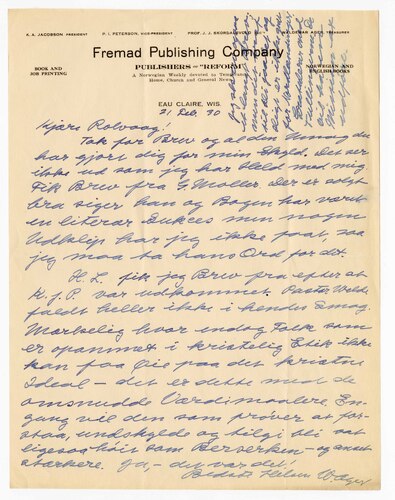 A. A. JACOBSON PRESIDENT P. I. PETERSON, VICE-PRESIDENT PROF. J. J. SKORDALSVOLD WALDEMAR AGER, TREASURER
Fremad Publishing Company
BOOK AND
JOB PRINTING
PUBLISHERS OF "REFORM"
A Norwegian Weekly devoted to Temperance,
Home, Church and General News
NORWEGIAN AND
ENGLISH BOOKS
EAU CLAIRE, WIS.
21 Feb. 30
Kjære Rolvaag!
Tak for Brev og al den Umag du
har gjort dig for min Skyld. Det ser
ikke ud som jeg har Held med mig.
Fik Brev fra G Moller. Der er solgt
bra siger han og Bogen har været
en literær Sukces men nogen
Udklip har jeg ikke faat, saa
jeg maa ta hans Ord for det.
H. L. fik jeg Brev fra efter at
K. J. P. var udkommet. Pastor Welde
faldt heller ikke i hendes Smag.
Mærkelig hvor endog Folk som
er opammet i kristelig Etik ikke
kan faa Øie paa det kristne
Ideal – det er dette med de
omsnudde Værdimaalere. En-
gang vil den som prøver at for-
staa, undskylde og tilgi bli sat
ligesaa høit som Berserken – og anset
stærkere. Ja, – det var det!
Bedste Hilsen W. Ager